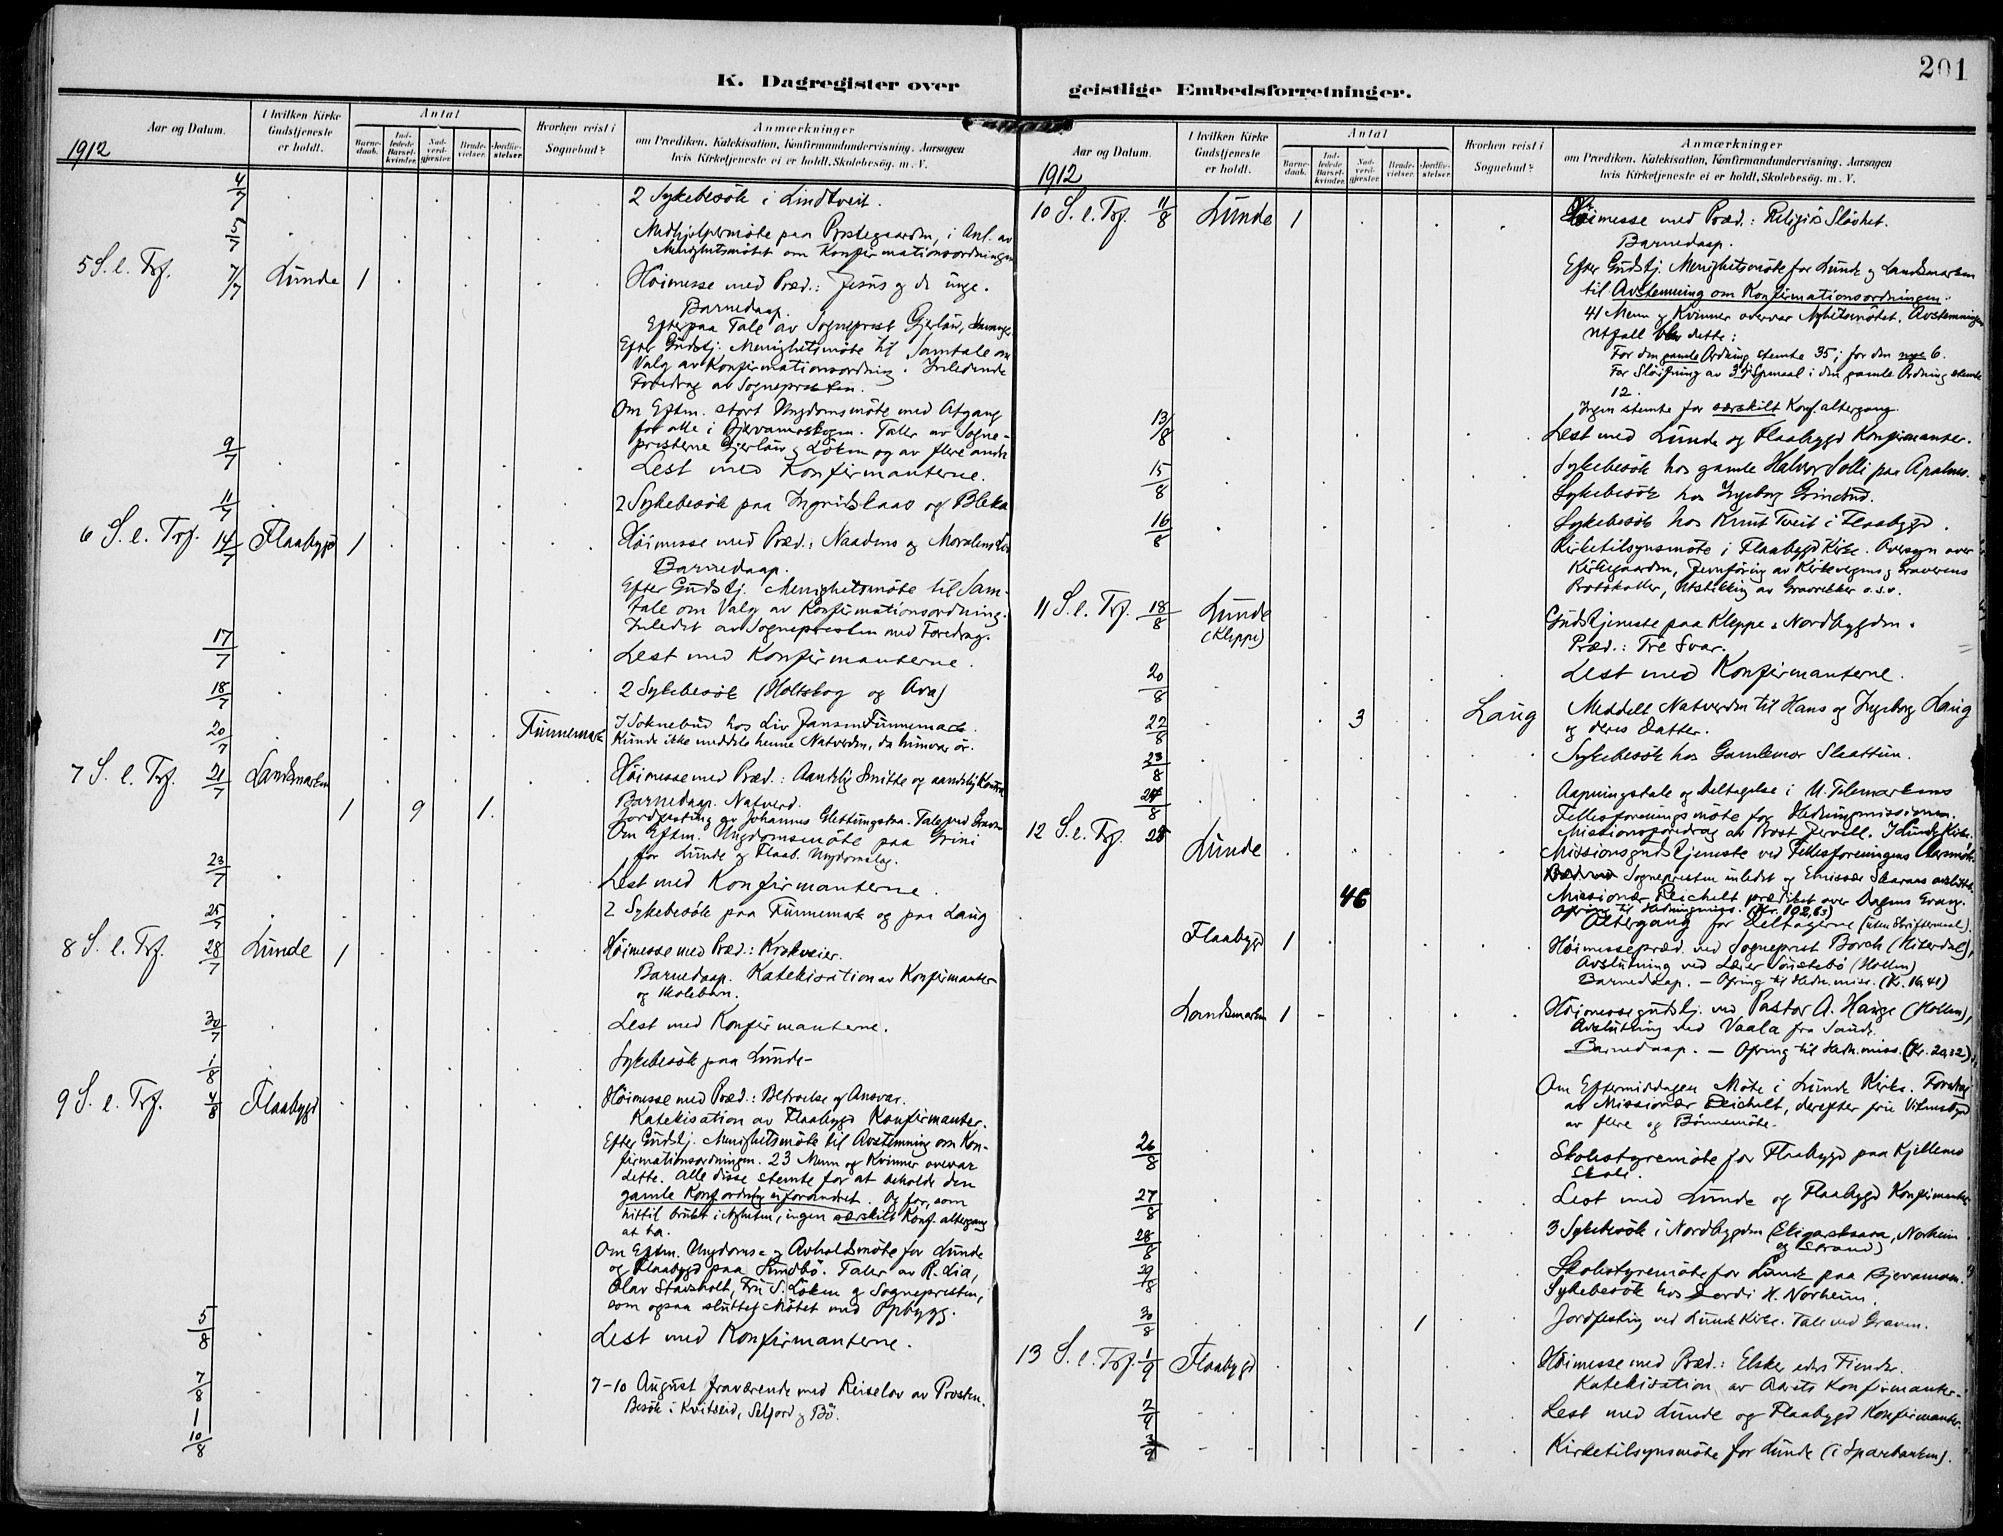 K. Dagregister over
Aar og Datum.
I hvilken Kirke Gudstjeneste er holdt.
Antal
Barnedaab.
Indledede Barselkvinder.
Nadverdgjester.
Brudevielser.
Jordfæstelser.
Hvorhen reist i Sognebud?
Anmærkninger
om Prædiken, Katekisation, Konfirmandundervisning, Aarsagen
hvis Kirketjeneste ei er holdt, Skolebesøg. m. V.
1912
4/7 2 Sykebesök i Lindtveit.
5/7 Medhjelpermöte paa Prestegaarden, i Anl. av
Menighetsmötet om Konfirmationsordningen
5 S. e. Trf. 7/7 Lunde 1 Höimesse med Præd.: Jesus og de unge.
Barnedaap.
Efterpaa Tale av Sogneprest Gjerløw,
Efter Gudstj. Menighetsmöte til Samtale om
Valg av Konfirmationsordning. Inledende
Foredrag av Sognepresten.
Om Eftm. stort Ungdomsmöte med Atgang
for alle i Bjervamoskogen. Taler av Sogne-
presterne Gjerløw og Löken og av flere andre
9/7 Lest med Konfirmanterne.
11/7 2 Sykebesök paa Ingridslaas og Bleka
6 S. e. Trf. 14/7 Flaabygd 1 Höimesse med Præd.: Naadens og Moralens Lov
Barnedaap.
Efter Gudstj. Menighetsmöte til Sam-
tale om Valg av Konfirmationsordning.
Inledet av Sognepresten med Foredrag.
17/7 Lest med Konfirmanterne.
18/7 2 Sykebesök (Holtskog og Ara)
20/7 Funnemark I Soknebud hos Liv Jansen Funnemark.
Kunde ikke meddele henne Natverden, da hun var ör.
7 S. e. Trf. 21/7 Landsmarken Höimesse med Præd.: Aandelig Smitte og aandelig
1 9 1. Barnedaap. Natverd.
Jordfesting av Johannes Tale ved Graven
Om Eftm. Ungdomsmöte paa Grini
for Lunde og Flaab. Ungdomslag.
23/7 Lest med Konfirmanterne.
25/7 2 Sykebesök paa Funnemark og paa Laug
8 S. e. Trf. 28/7 Lunde 1 Höimesse med Præd.: Krokveier.
Barnedaap. Katekisation av Konfirmanter
og Skolebarn.
30/7 Lest med Konfirmanterne.
1/8 Sykebesök paa Lunde-
9 S. e. Trf. 4/8 Flaabygd Höimesse med Præd.: Betroelse og Ansvar.
Katekisation av Flaabygd Konfirmanter.
Efter Gudstj. Menighetsmöte til Avstemning om Kon-
firmationsordningen. 23 Menn og Kvinner overvar
dette. Alle disse stemte for at beholde den
gamle Konf.ordning uforandret. Og for, som
hittil brukt i Myheten, ingen særskilt Konf. altergang
at ha.
Om Eftm. Ungdoms- og Avholdsmöte for Lunde
og Flaabygd paa Sundbö. Taler av R. Lia,
Olav Stavsholt, Fru S. Löken og Sognepresten,
som ogsaa sluttet Mötet med Opbygg.
5/8 Lest med Konfirmanterne.
7/8
10/8 7-10 August fraværende med Reiselov av Prosten.
Besök i Kvitseid, Seljord og Bö.
geistlige Embedsforretninger.
201
Aar og Datum.
I hvilken Kirke Gudstjeneste er holdt.
Antal
Barnedaab.
Indledede Barselkvinder.
Nadverdgjester.
Brudevielser.
Jordfæstelser.
Hvorhen reist i Sognebud?
Anmærkninger
om Prædiken, Katekisation, Konfirmandundervisning, Aarsagen
hvis Kirketjeneste ei er holdt, Skolebesøg. m. V.
1912
10 S. e. Trf. 11/8 Lunde 1 Höimesse med Præd.: Religiös Slövhet.
Barnedaap.
Efter Gudstj. Menighetsmöte for Lunde og Landsmarken
til Avstemning om Konfirmationsordningen.
41 Menn og Kvinner overvar Myhetsmötet. Avstemningens
Utfall blev dette:
For den gamle Ordning stemte 35; for den nye 6.
For Slöifning av 3dje Spmaal i den gamle Ordning stemte
12.
Ingen stemte for særskilt Konf.altergang.
13/8 Lest med Lunde og Flaabygd Konfirmanter.
15/8 Sykebesök hos gamle Halvor Solli paa Apalnes.
Sykebesök hos Ingeborg Grinebud.
16/8 Sykebesök hos Knut Tveit i Flaabygd.
Kirketilsynsmöte i Flaabygd Kirke. Oversyn over
Kirkegaarden, Jevnföring av Kirkevergens og Graverens
Protokoller, Utstikking av Gravrekker o.s.v.
11 S. e. Trf. 18/8 Lunde
(Kleppe) Gudstjeneste paa Kleppe i Nordbygden.
Præd.: Tre Svar.
20/8 Lest med Konfirmanterne.
22/8 3 Laug Meddelt Natverden til Hans og Ingeborg Laug
og deres Datter.
23/8 Sykebesök hos Gamlemor Slaattun.
24/8 Aapningstale og Deltagelse i Ö. Telemarkens
Fellesforenings möte for Hedningmissionen.
Missionsforedrag av Prost I Lunde Kirke.
12 S. e. Trf. 25 Lunde Missionsgudstjeneste ved Fellesforeningens Aarsmöte.
Sognepresten inledet og Emissær Skaraas avsluttet.
46 Missionær Reichelt prædiket over Dagens Evang.
Ofring til Hedningmiss. (Kr. 102,63)
Altergang for Deltagerne (uten Skriftemaal).
Flaabygd 1 Höimessepræd. ved Sogneprest Borch (Hiterdal),
Avslutning ved Lærer Sönstebö (Hollen)
Barnedaap. - Ofring til Hedn.miss. (Kr. 16,41)
Landsmarken 1 Höimessegudstj. ved Pastor A. Hauge (Hollen),
Avslutning ved Vaala fra Sande.
Barnedaap. - Ofring til Hedn.miss. (Kr. 20,12).
Om Eftermiddagen Möte i Lunde Kirke. Foredrag
av Missionær Reichelt, derefter frie Vitnesbyrd
av flere og Bönnemöte.
26/8 Skolestyremöte for Flaabygd paa Kjellemo
Skole.
27/8 Lest med Lunde og Flaabygd Konfirmanter
28/8 3 Sykebesök i Nordbygden (Norheim
og Strand)
29/8 Skolestyremöte for Lunde paa Bjervamoen.
Sykebesök hos H. Norheim.
30/8 1 Jordfesting ved Lunde Kirke. Tale ved Graven.
13 S. e. Trf. 1/9 Flaabygd Höimesse med Præd.: Elsker eders Fiender.
Katekisation av Aarets Konfirmanter.
2/9 Lest med Lunde og Flaabygd Konfirmanter.
3/9 Kirketilsynsmöte for Lunde (i Sparebanken).